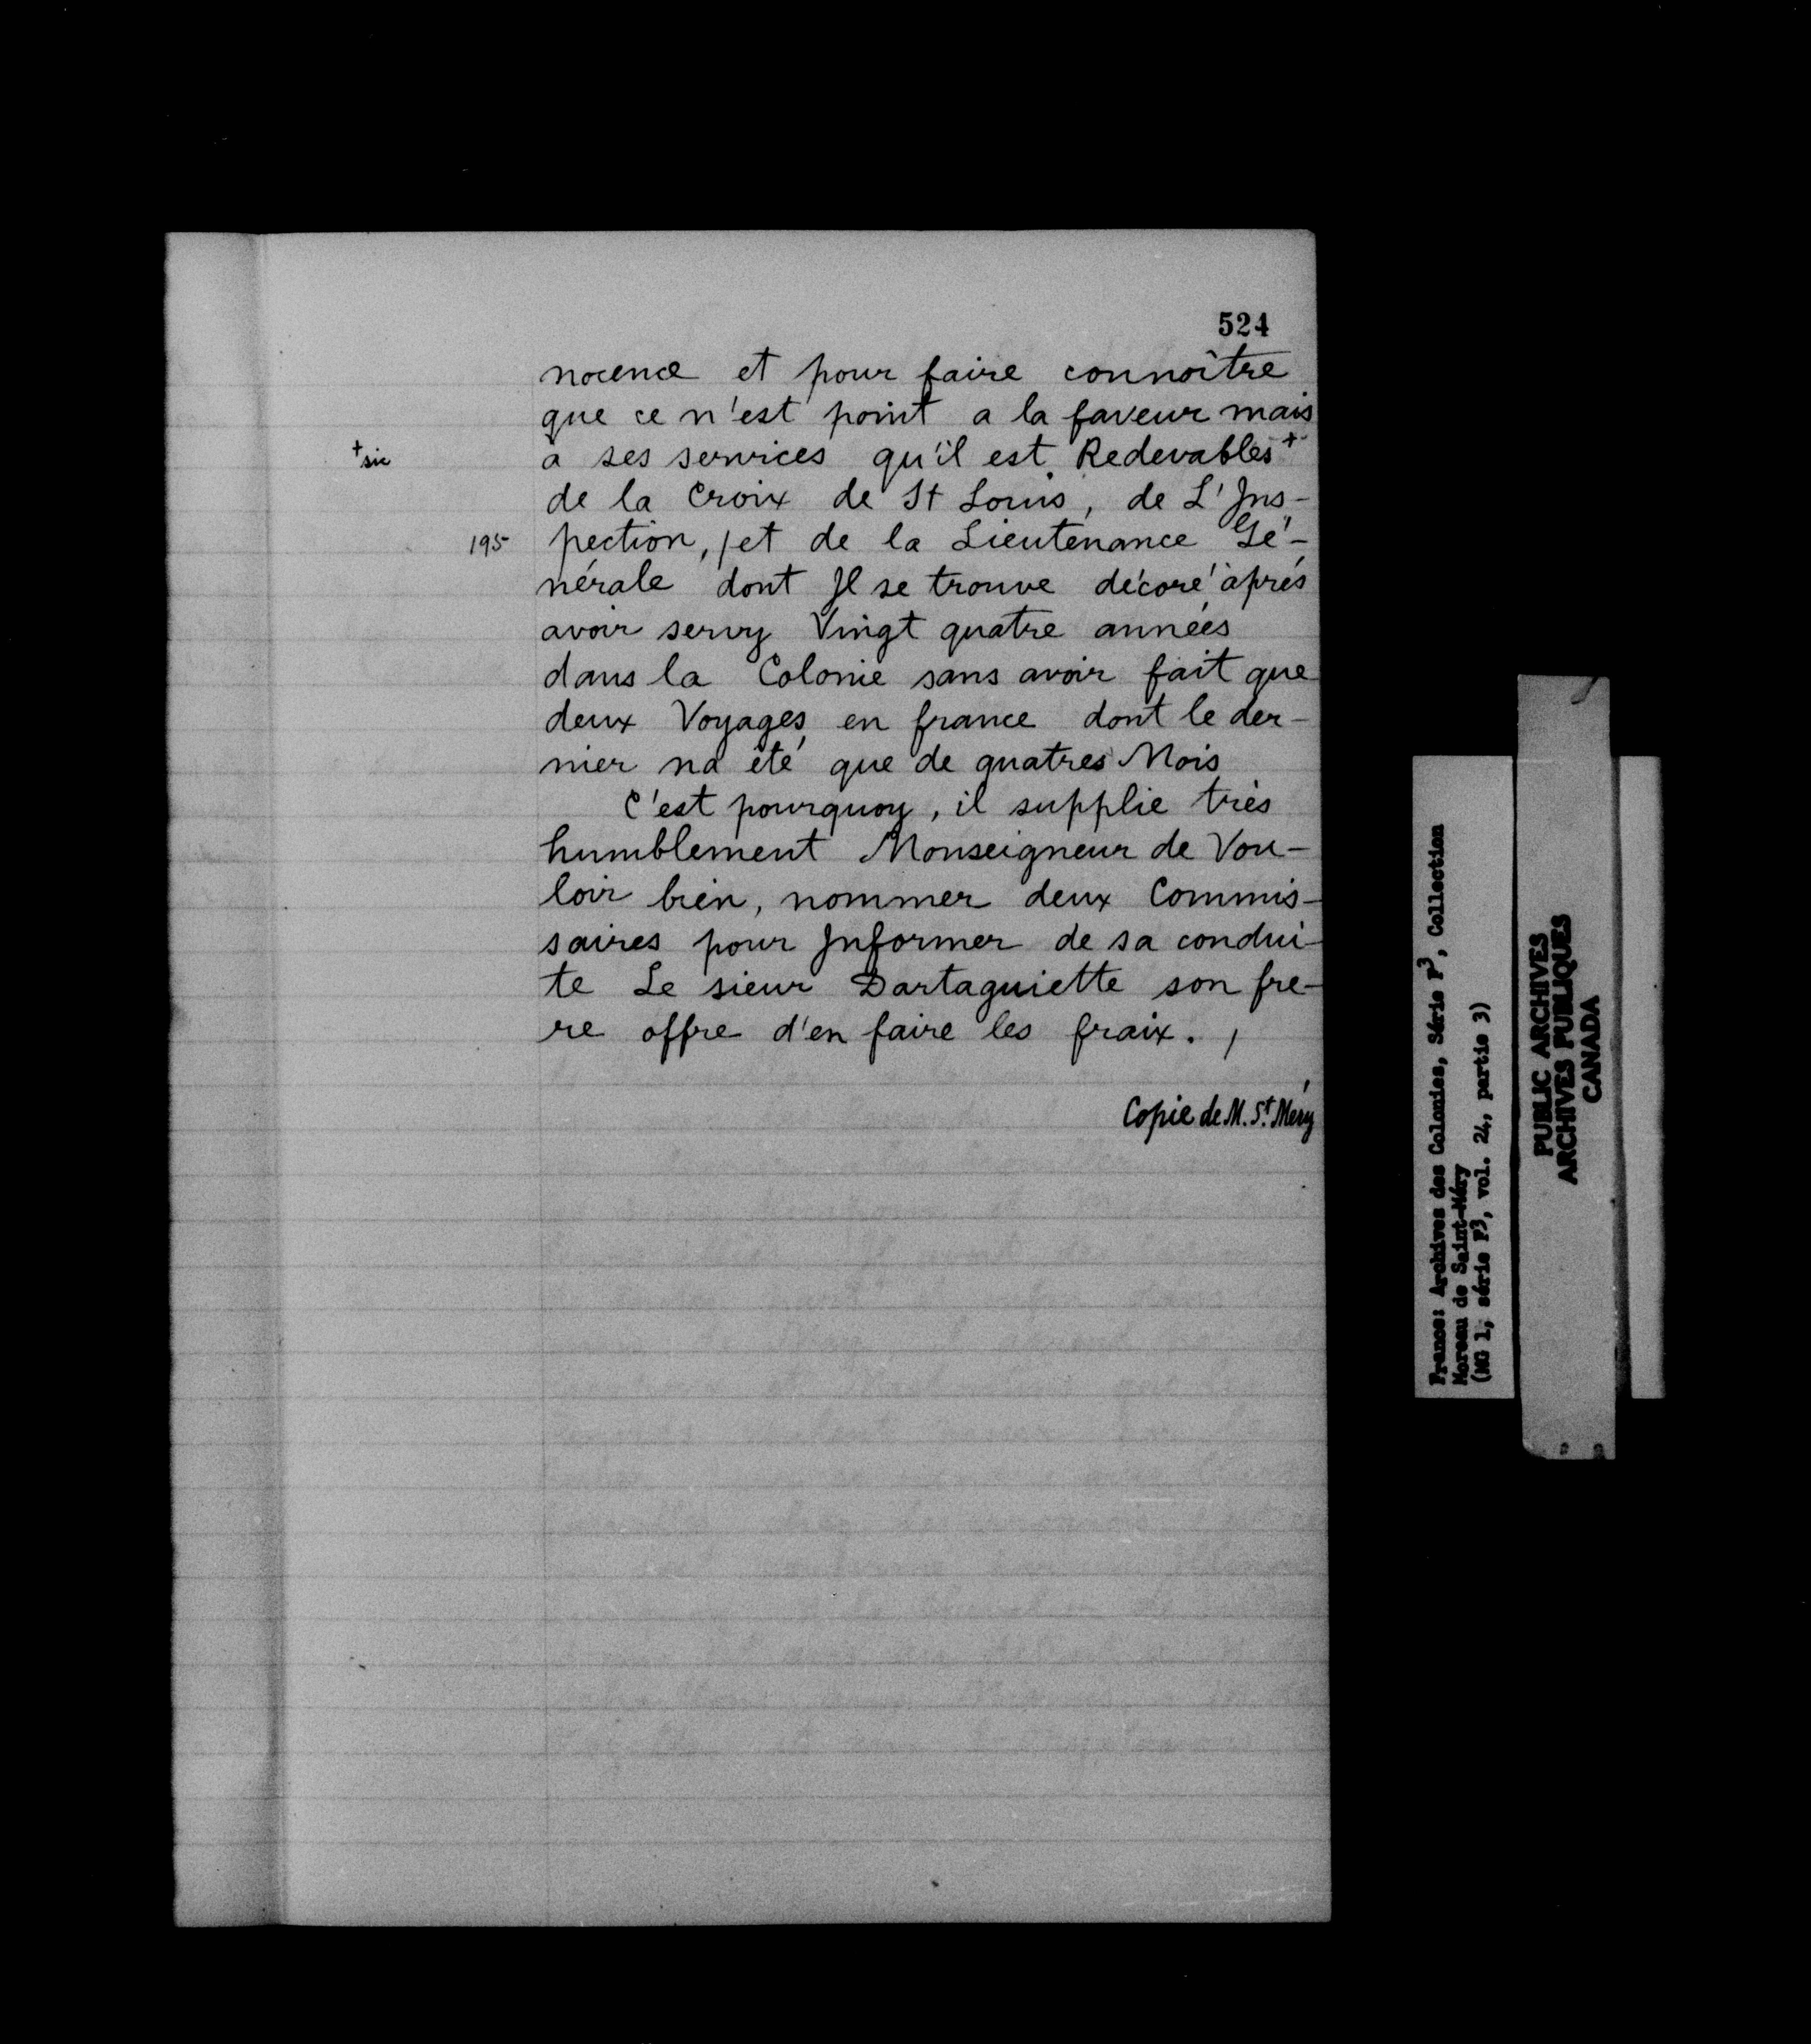 524
nocence et pour faire connoître
que ce n'est point a la faveur mais
+sic
à ses services qu'il est Redevables+
de la Croix de St Louis, de L'Ins-
195
pection, / et de la Lieutenance Gé-
nérale dont Il se trouve décoré après
avoir servy Vingt quatre années
dans la Colonie sans avoir fait que
deux Voyages en france dont le der-
nier na été que de quatres Mois
C'est pourquoy, il supplie très
humblement Monseigneur de Vou-
loir bien, nommer deux Commis-
saires pour Informer de sa condui-
te Le sieur Dartaguiette son fre-
re offre d'en faire les fraix. /
Copie de M. St. Méry
France: Archives des Colonies, Série F3, Collection
Moreau de Saint-Méry
(MG 1, série F3, vol. 24, partie 3)
PUBLIC ARCHIVES
ARCHIVES PUBLIQUES
CANADA